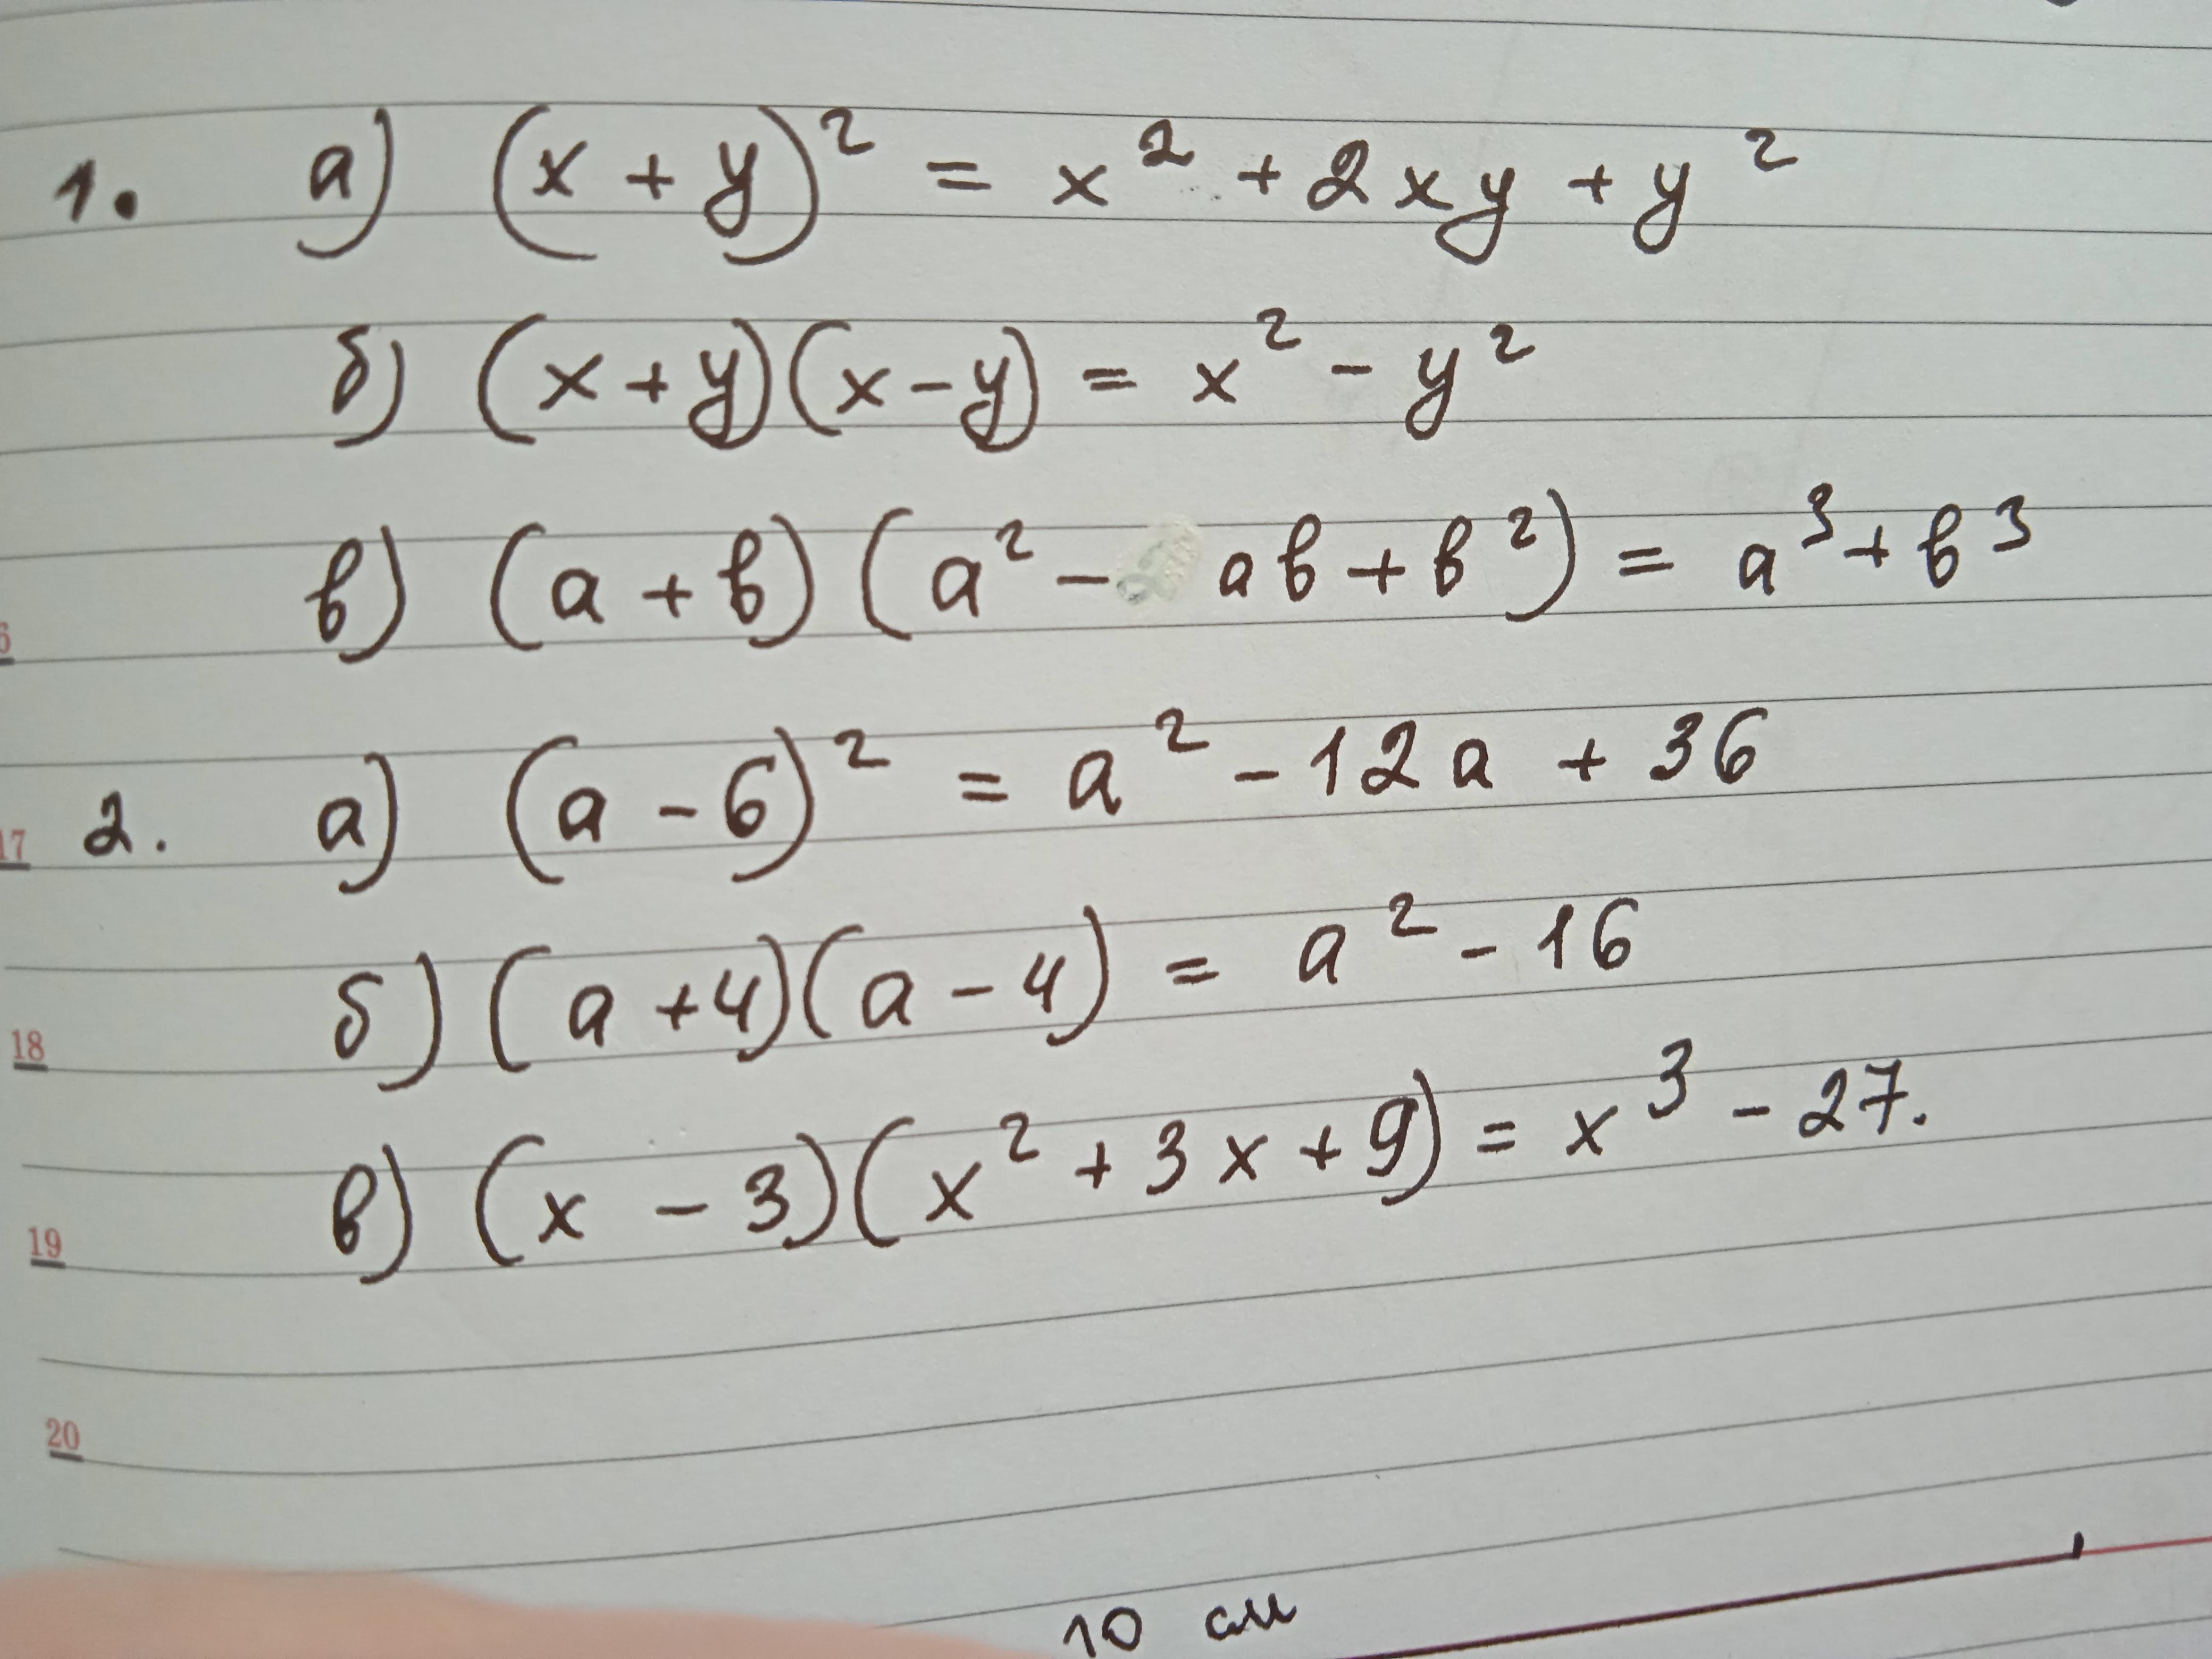 1. а) (x + y)² = x² + 2xy + y²
б) (x + y)(x - y) = x² - y²
в) (a + в)(a² - aв + в²) = a³ + в³
2. а) (a - 6)² = a² - 12a + 36
17
б) (a + 4)(a - 4) = a² - 16
18
в) (x - 3)(x² + 3x + 9) = x³ - 27.
19
20
10 см